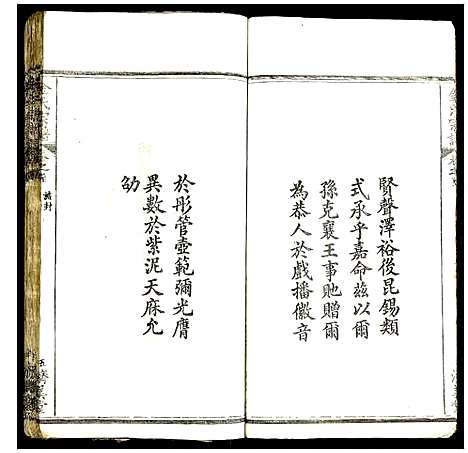 賢聲澤裕後昆錫類
式承乎嘉命茲以爾
孫克襄王事貤贈爾
為恭人於戲播徽音
於彤管壺範彌光膺
異數於紫泥天庥允
劭
誥封
五